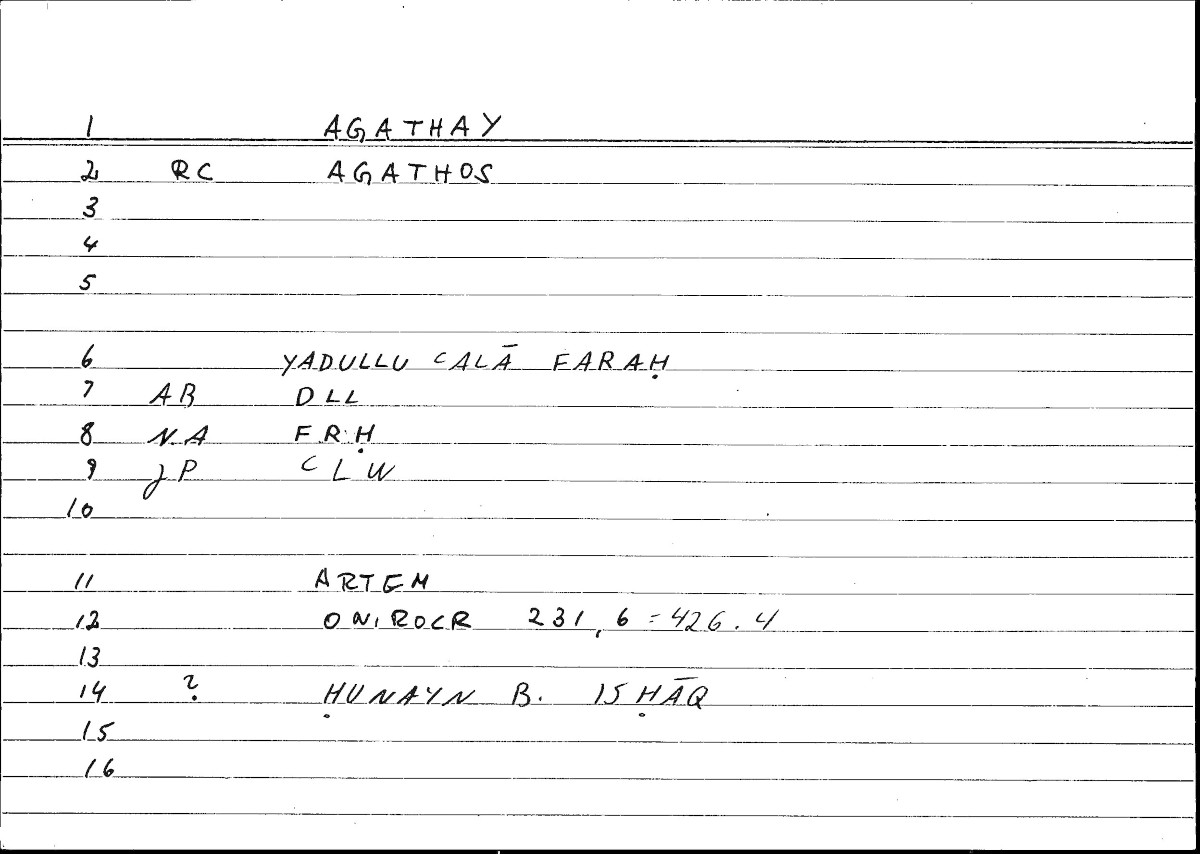 1 AGATHAY
2 RC AGATHOS
3
4
5
6 YADULLU ᶜALĀ FARAḤ
7 AB DLL
8 N.A F.R.Ḥ
9 JP ᶜLW
10
11 ARTEM
12 ONIROCR 231,6 = 426.4
13
14 ? ḤUNAYN B. ISḤĀQ
15
16